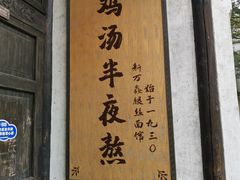 鸡汤半夜熬
始于一九三〇
新万鑫缓丝面馆